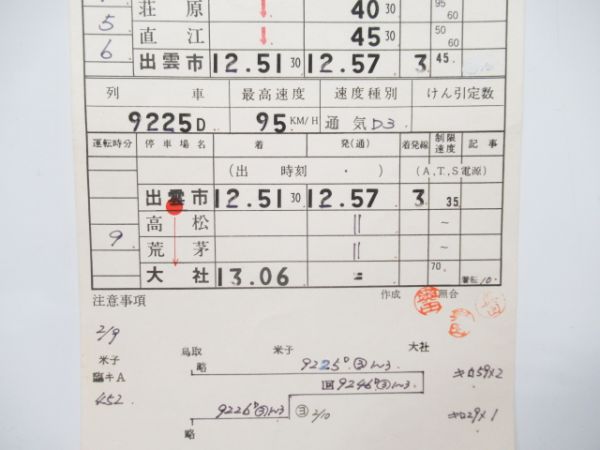 荘原 ↓ 40 30 95 60
5
直江 ↓ 45 30 50 60
6
出雲市 12.51 30 12.57 3 45.
列車 最高速度 速度種別 けん引定数
9225D 95 KM/H 通気D3
運転時分 停車場名 着 発(通) 着発線 制限速度 記事
(出時刻 ・ ) (A,T,S電源)
出雲市 12.51 30 12.57 3 35
高松 〃 ~
9
荒茅 〃 ~
大社 13.06 = 70. 10.
注意事項 作成 照合
2/9
米子
臨キA
452
鳥取 米子 大社
略 9225D ③ キロ59×2
回9246D ③
9226D ③ ③ 2/10 キロ29×1
略